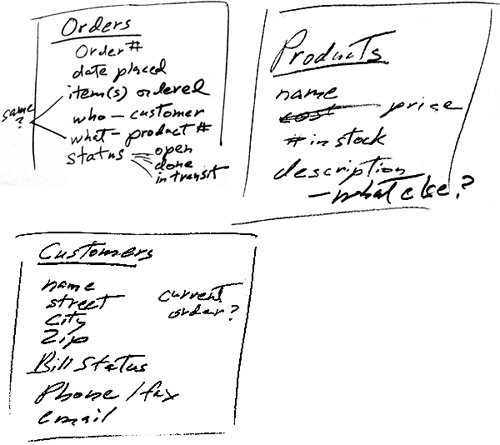 Orders
Order #
date placed
item(s) ordered
same
?
who - customer
what - product #
status - open
done
in transit
Products
name
cost price
# in stock
description
- what else?
Customers
name
street
city
zip
current
order?
Bill Status
Phone / fax
email